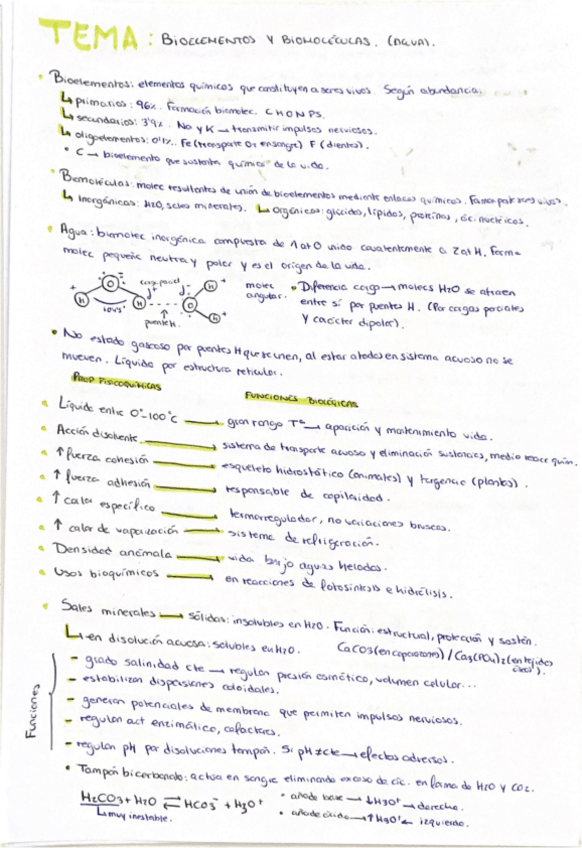 TEMA: BIOELEMENTOS Y BIOMOLÉCULAS. (AGUA).
• Bioelementos: elementos químicos que constituyen a seres vivos. Según abundancia:
↳ primarios: 96%. Formación biomolec. C H O N P S.
↳ secundarios: 3'9%. Na y K → transmitir impulsos nerviosos.
↳ oligoelementos: 0'1%. Fe (transporte O2 en sangre) F (dientes).
• C → bioelemento que sustenta química de la vida.
• Biomoléculas: molec resultantes de unión de bioelementos mediante enlaces químicos. Forman parte seres vivos.
↳ Inorgánicas: H2O, sales minerales. ↳ Orgánicas: glúcidos, lípidos, proteínas, ác. nucleicos.
• Agua: biomolec inorgánica compuesta de 1 at O unido covalentemente a 2 at H. Forma
molec pequeña neutra y polar y es el origen de la vida.
carga parcial
104'5°
puente H.
molec angular.
• Diferencia carga → molecs H2O se atraen
entre sí por puentes H. (Por cargas parciales
y carácter dipolar).
• No estado gaseoso por puentes H que se unen, al estar atados en sistema acuoso no se
mueven. Líquido por estructura reticular.
PROP FISICOQUÍMICAS
FUNCIONES BIOLÓGICAS
• Líquida entre 0°-100°c → gran rango Tª → aparición y mantenimiento vida.
• Acción disolvente → sistema de transporte acuoso y eliminación sustancias, medio reacc quím.
• ↑ fuerza cohesión → esqueleto hidrostático (animales) y turgencia (plantas).
• ↑ fuerza adhesión → responsable de capilaridad.
• ↑ calor específico → termorregulador, no variaciones bruscas.
• ↑ calor de vaporización → sistema de refrigeración.
• Densidad anómala → vida bajo aguas heladas.
• Usos bioquímicos → en reacciones de fotosíntesis e hidrólisis.
• Sales minerales → sólidas: insolubles en H2O. Función: estructural, protección y sostén.
CaCO3 (en caparazones) / Ca3(PO4)2 (en tejidos óseos).
↳ en disolución acuosa: solubles en H2O.
Funciones
- grado salinidad cte → regulan presión osmótica, volumen celular...
- estabilizan dispersiones coloidales.
- generan potenciales de membrana que permiten impulsos nerviosos.
- regulan act enzimático, cofactores.
- regulan pH por disoluciones tampón. Si pH ≠ cte → efectos adversos.
• Tampón bicarbonato: actúa en sangre eliminando exceso de ác. en forma de H2O y CO2.
H2CO3 + H2O ⇄ HCO3⁻ + H3O⁺
↳ muy inestable.
• añade base → ↓H3O⁺ → derecha.
• añade ácido → ↑H3O⁺ ← izquierda.